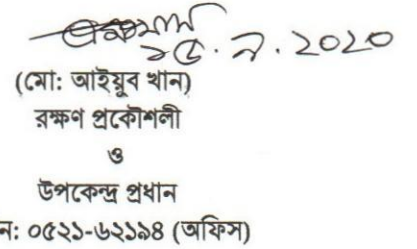 ১৫.৯.২০২০
(মো: আইয়ুব খান)
রক্ষণ প্রকৌশলী
ও
উপকেন্দ্র প্রধান
ন: ০৫২১-৬২১৯৪ (অফিস)